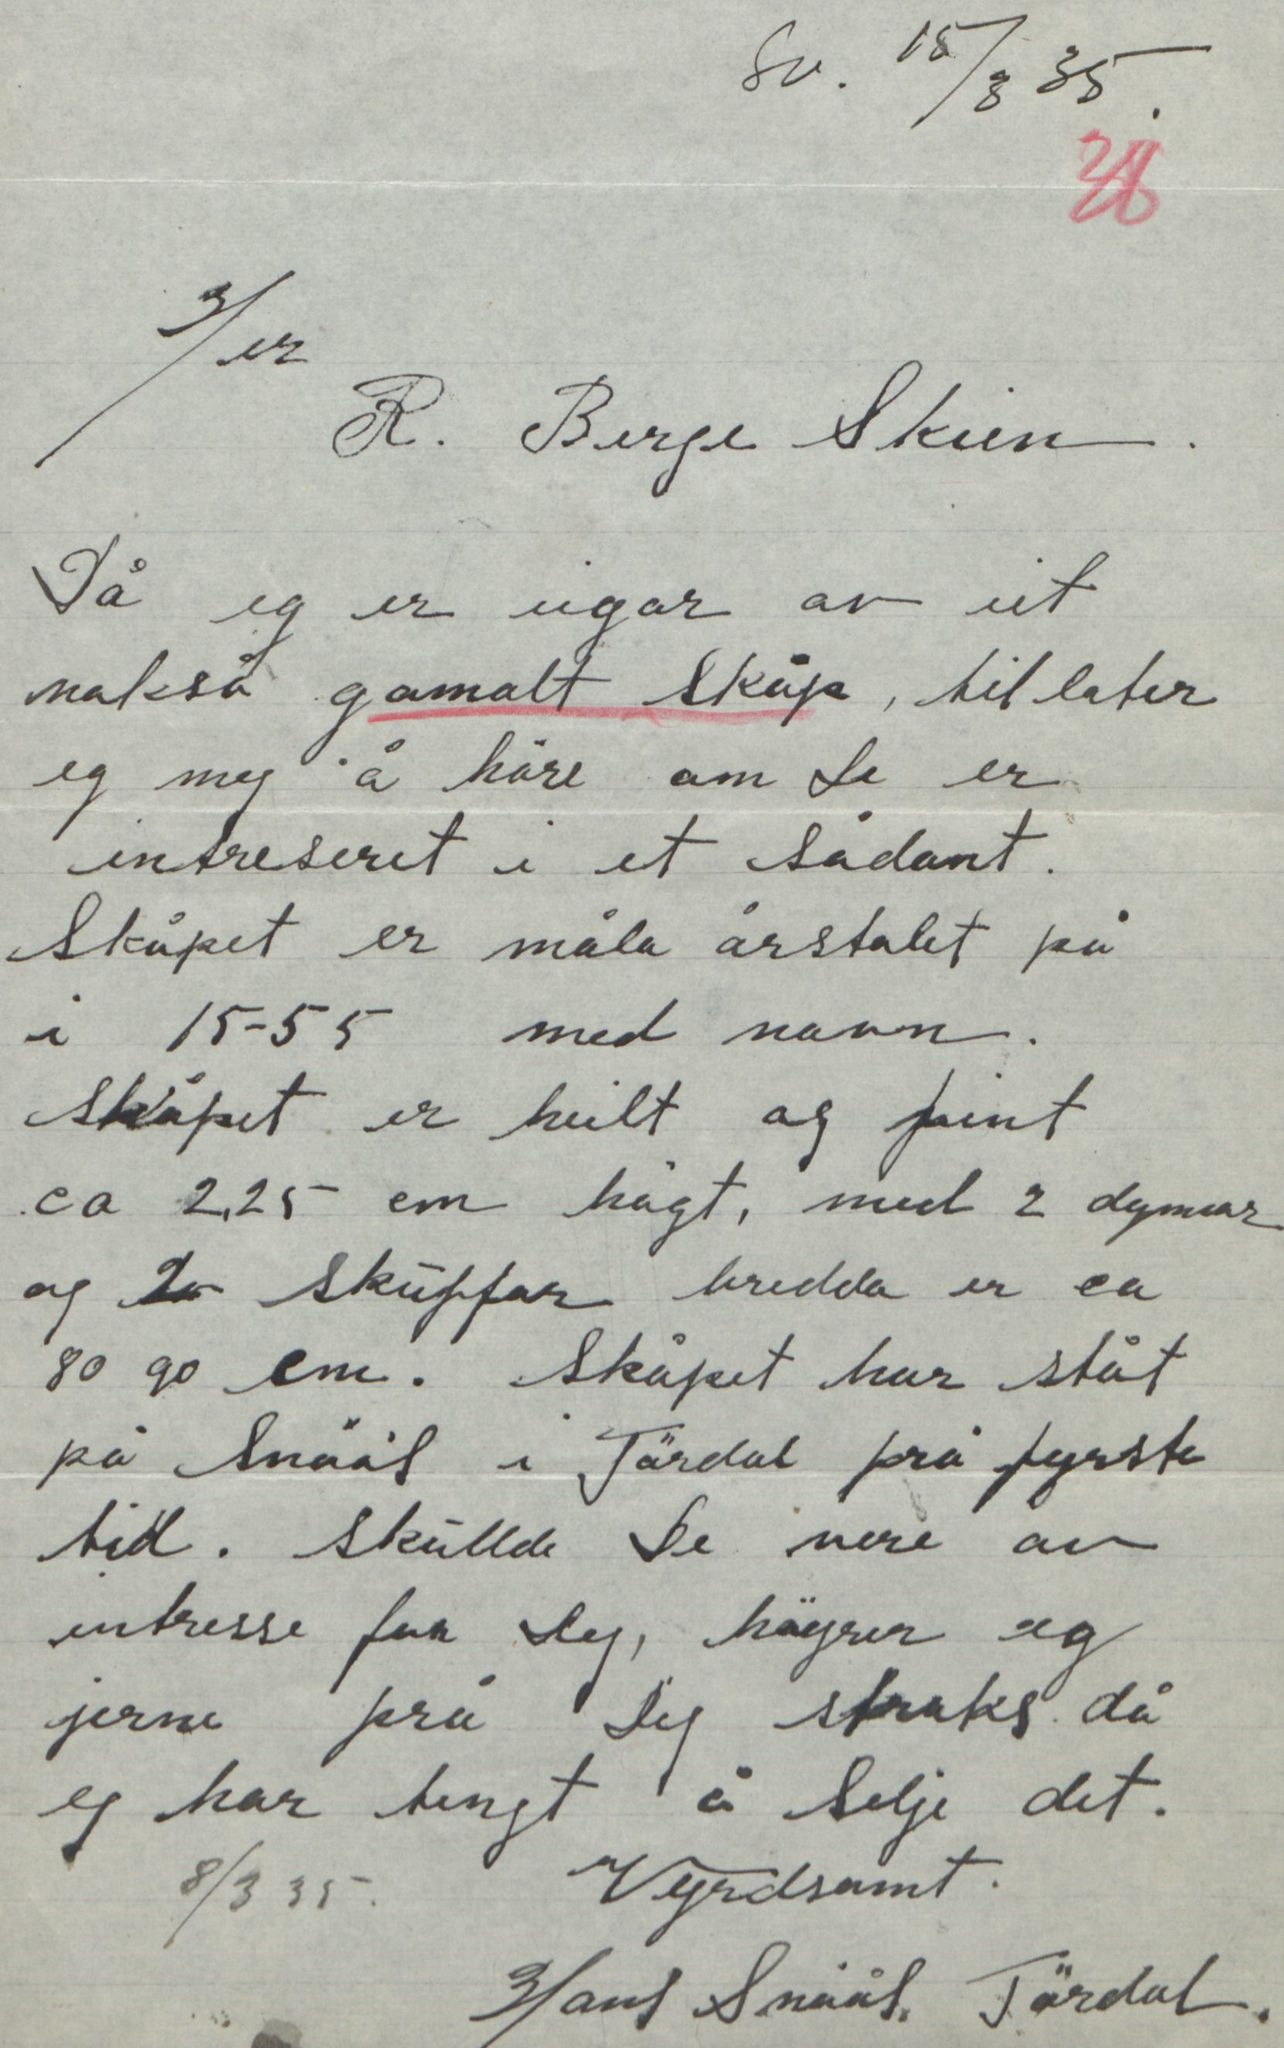 Sv. 15/3 35.
Her
R. Berge Skien.
Då eg er eigar av eit
nokså gamalt skåp, tillater
eg meg å höre om De er
intreseret i et sådant.
Skåpet er måla årstalet på
i 15-55 med navn.
Skåpet er heilt og feint
ca 2,25 cm högt, med 2 dynnar
og 2 skuffar bredda er ca
80 90 cm. Skåpet har ståt
på Snåås i Tördal frå fyrste
tid. Skullde De vere av
intresse for Deg, höyrer eg
jerne frå Deg straks då
eg har tengt å Selje det.
8/3 35. Vyrdsamt.
Hans Snåås. Tördal.